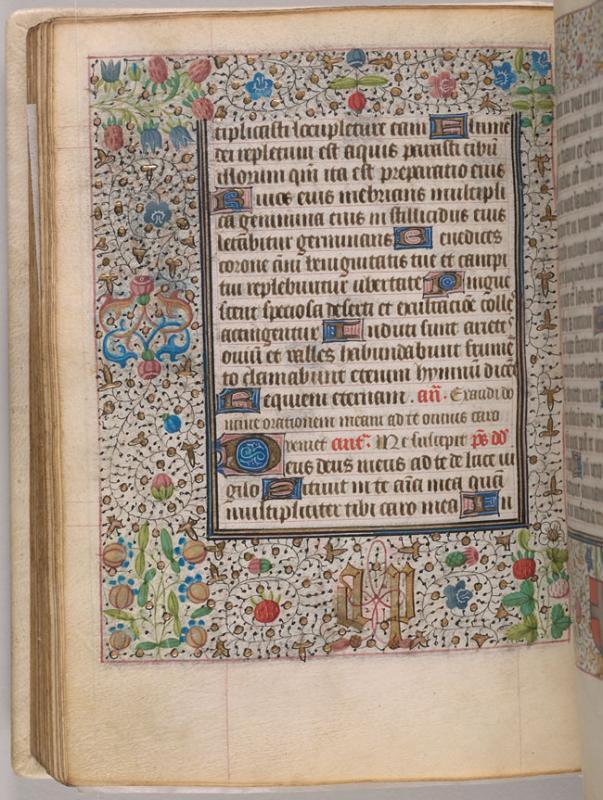 tiplicasti locupletare eam Flume
dei repletum est aquis parasti cibū
illorum qm̄ ita est preparatio eius
Riuos eius inebrians multipli
ca genimina eius in stillicidiis eius
letabitur germinans Benedices
corone āni benignitatis tue et campi
tui replebuntur ubertate Pingue
scent speciosa deserti et exultacōe colle
accingentur Induti sunt ariete
ouiū et valles habundabunt frume
to clamabunt etenim hymnū dicēt
Requiem eternam. añ. Exaudi do
mine orationem meam ad te omnis caro
veniet ant'. Me suscepit p̄s do
Deus deus meus ad te de luce vi
gilo Sitiuit in te aīa mea quā
multipliciter tibi caro mea In